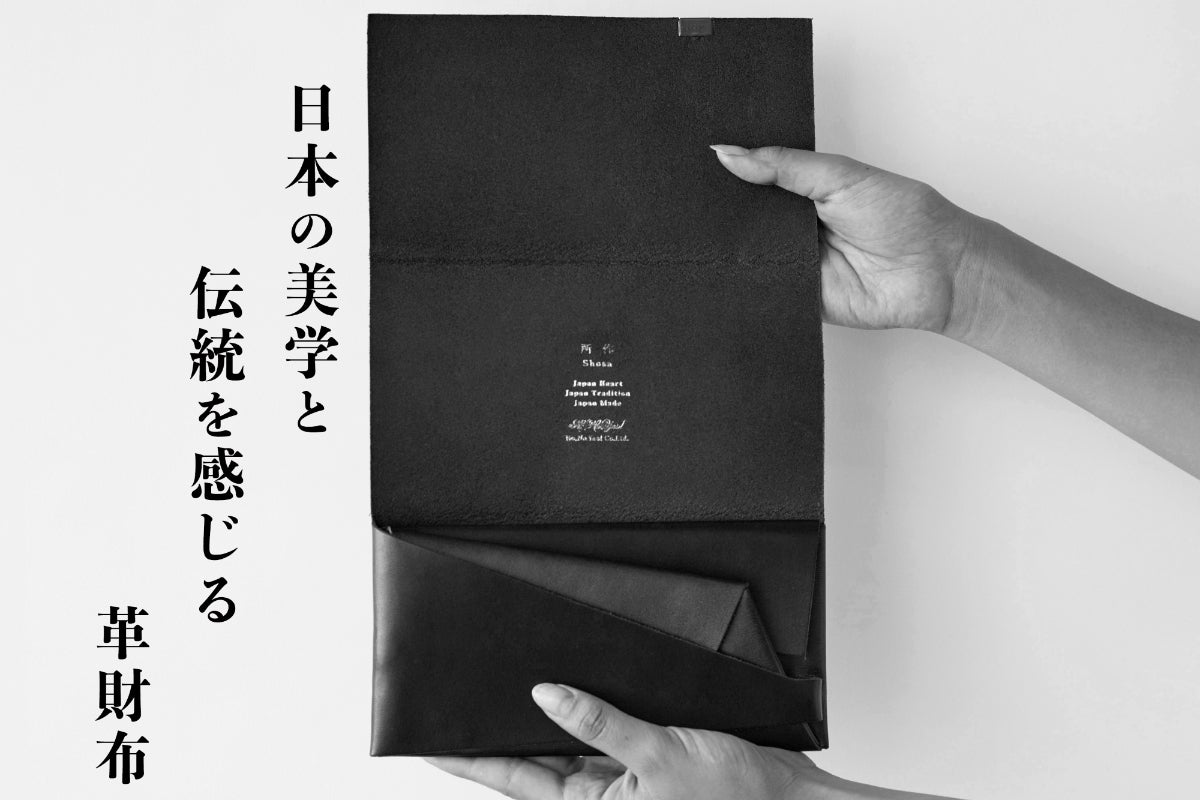 日本の美学と
伝統を感じる
革財布
所作
Shosa
Japan Heart
Japan Tradition
Japan Made